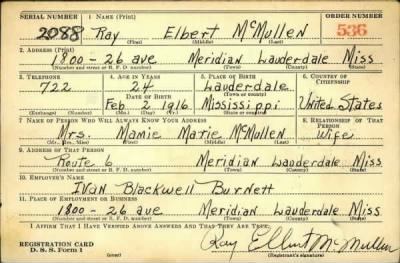 SERIAL NUMBER 1. NAME (Print) ORDER NUMBER
2088 Ray Elbert McMullen 536
(First) (Middle) (Last)
2. ADDRESS (Print)
1800 - 26 ave Meridian Lauderdale Miss
(Number and street or R. F. D. number) (Town) (County) (State)
3. TELEPHONE 4. AGE IN YEARS 5. PLACE OF BIRTH 6. COUNTRY OF CITIZENSHIP
722 24 Lauderdale
DATE OF BIRTH (Town or county)
Feb 2 1916 Mississippi United States
(Exchange) (Number) (Mo.) (Day) (Yr.) (State or country)
7. NAME OF PERSON WHO WILL ALWAYS KNOW YOUR ADDRESS 8. RELATIONSHIP OF THAT PERSON
Mrs. Mamie Marie McMullen Wife
(Mr., Mrs., Miss) (First) (Middle) (Last)
9. ADDRESS OF THAT PERSON
Route 6 Meridian Lauderdale Miss
(Number and street or R. F. D. number) (Town) (County) (State)
10. EMPLOYER'S NAME
Ivan Blackwell Burnett
11. PLACE OF EMPLOYMENT OR BUSINESS
1800 - 26 ave Meridian Lauderdale Miss
(Number and street or R. F. D. number) (Town) (County) (State)
I AFFIRM THAT I HAVE VERIFIED ABOVE ANSWERS AND THAT THEY ARE TRUE.
REGISTRATION CARD Ray Elbert McMullen
D. S. S. Form 1 (Registrant's signature)